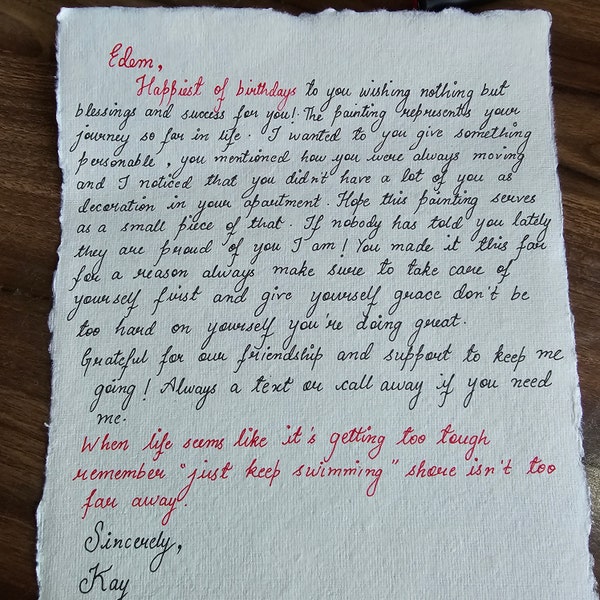 Edem,
Happiest of birthdays to you wishing nothing but
blessings and success for you! The painting represents your
journey so far in life. I wanted to you give something
personable, you mentioned how you were always moving
and I noticed that you didn't have a lot of you as
decoration in your apartment. Hope this painting serves
as a small piece of that. If nobody has told you lately
they are proud of you I am! You made it this far
for a reason always make sure to take care of
yourself first and give yourself grace don't be
too hard on yourself you're doing great.
Grateful for our friendship and support to keep me
going! Always a text or call away if you need
me.
When life seems like it's getting too tough
remember "just keep swimming" shore isn't too
far away.
Sincerely,
Kay